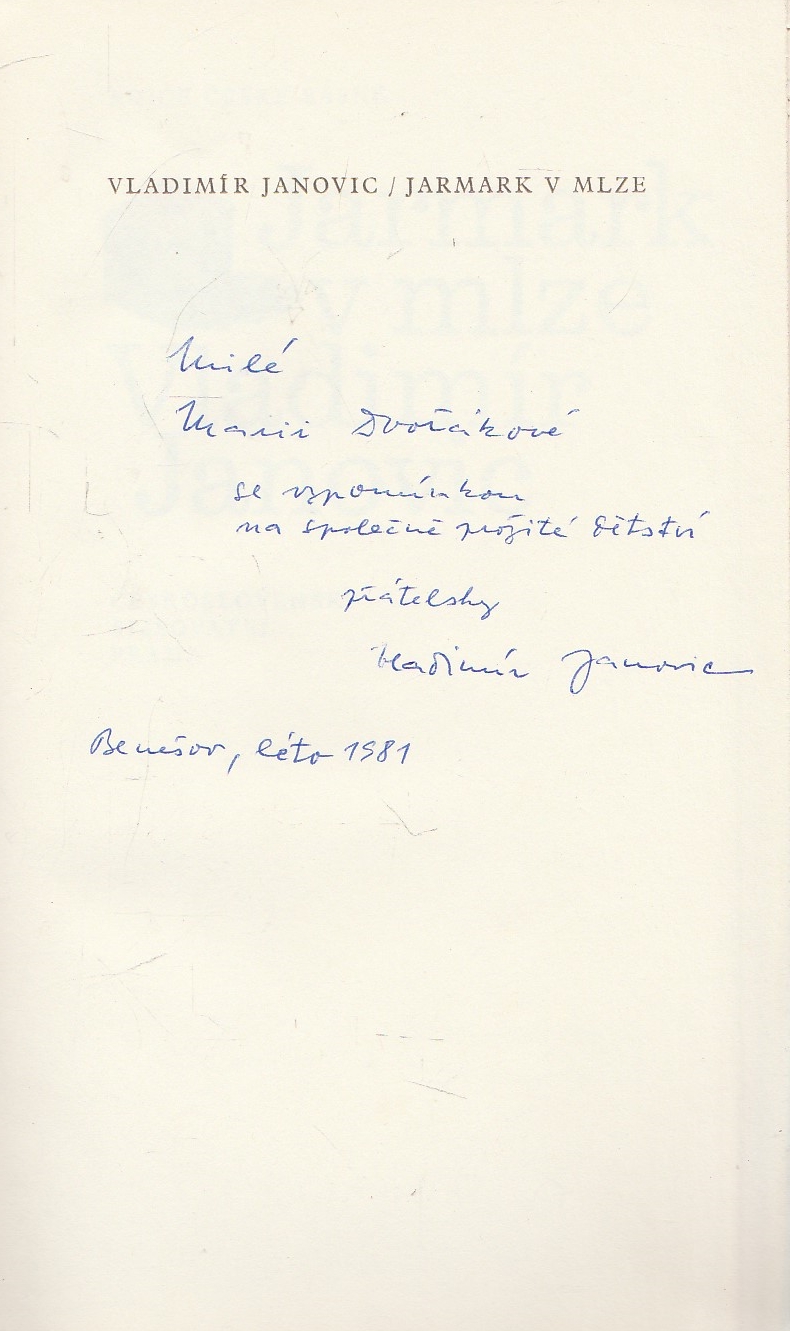 VLADIMÍR JANOVIC / JARMARK V MLZE
Milé
Marii Dvořákové
se vzpomínkou
na společně prožité dětství
přátelsky
Vladimír Janovic
Benešov, léto 1981